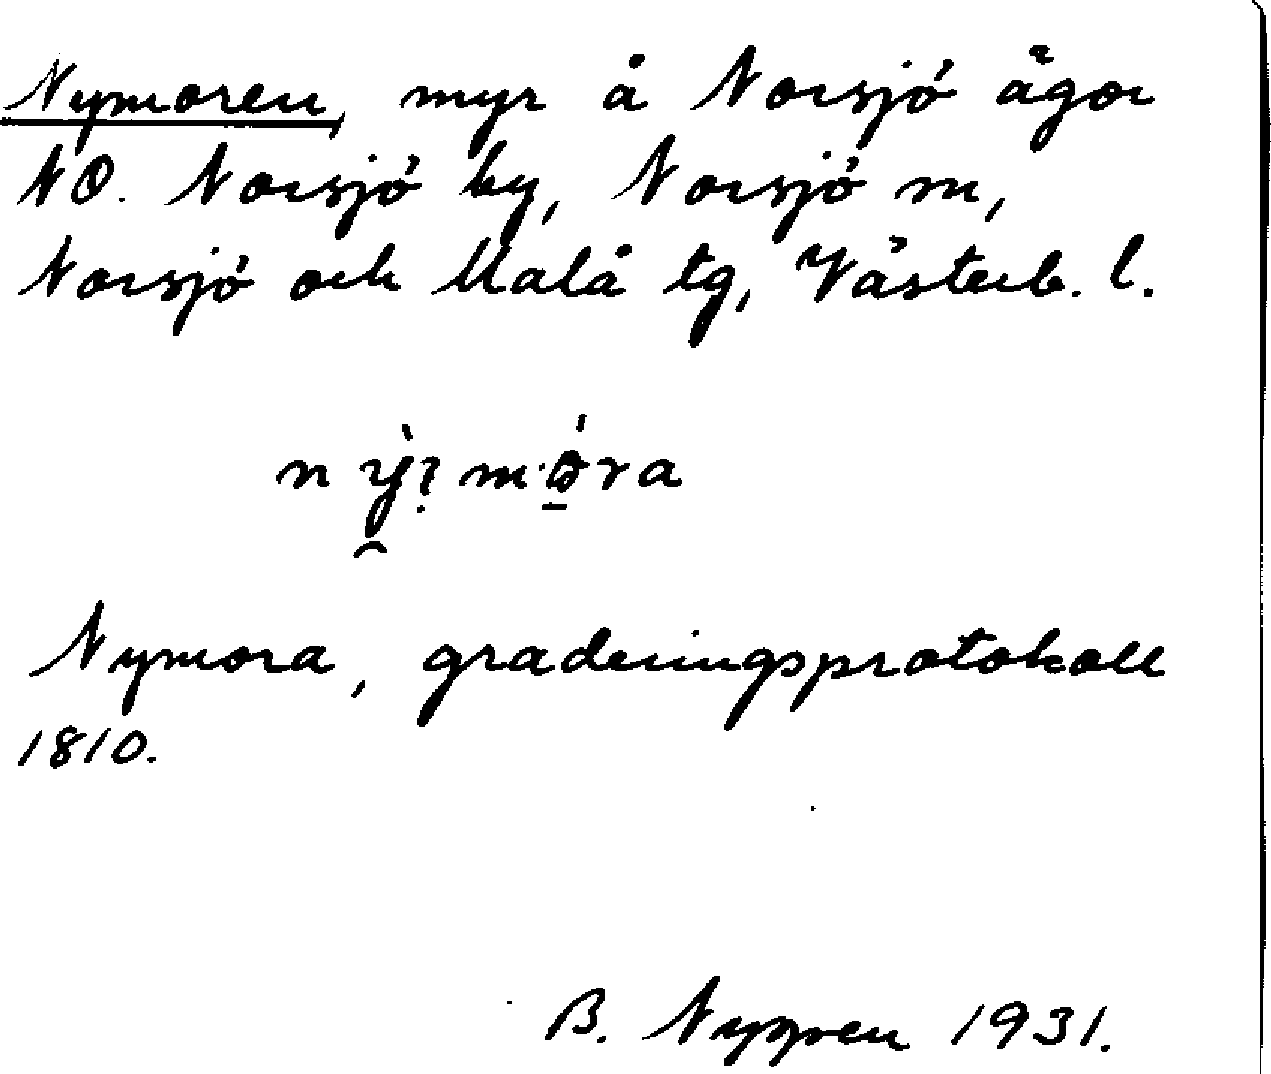 Nymoren, myr å Norsjö ägor
NO. Norsjö by, Norsjö sn,
Norsjö och Malå tg, Västerb. l.
Nymora, graderingsprotokoll
1810.
B. Nygren 1931.